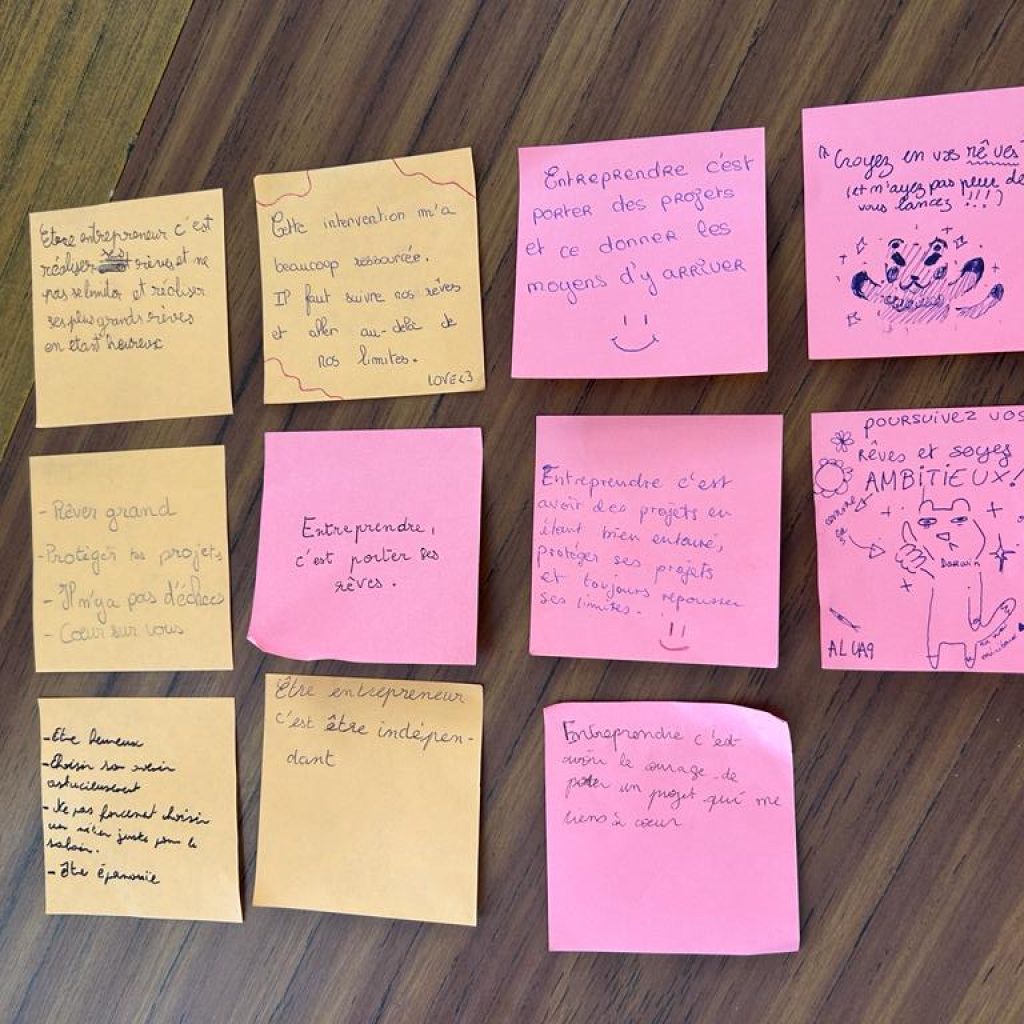 Etre entrepreneur c'est
réaliser ses rêves et ne
pas se limiter et réaliser
ses plus grands rêves
en étant heureux
Cette intervention m'a
beaucoup ressourcée.
Il faut suivre nos rêves
et aller au-delà de
nos limites.
LOVE <3
Entreprendre c'est
porter des projets
et ce donner les
moyens d'y arriver
Croyez en vos rêves
(et n'ayez pas peur de
vous lancez !!!)
- Rêver grand
- Protéger tes projets
- Il n'y a pas d'échecs
- Cœur sur vous
Entreprendre,
c'est porter ses
rêves.
Entreprendre c'est
avoir des projets en
étant bien entouré,
protéger ses projets
et toujours repousser
ses limites.
POURSUIVEZ VOS
Rêves et soyez
AMBITIEUX!
Darwin
- Etre heureux
- Choisir son avenir
astucieusement
- Ne pas forcément choisir
un métier juste pour le
salaire.
- être épanouie
Être entrepreneur
c'est être indépen-
dant
Entreprendre c'est
avoir le courage de
porter un projet qui me
tiens à cœur